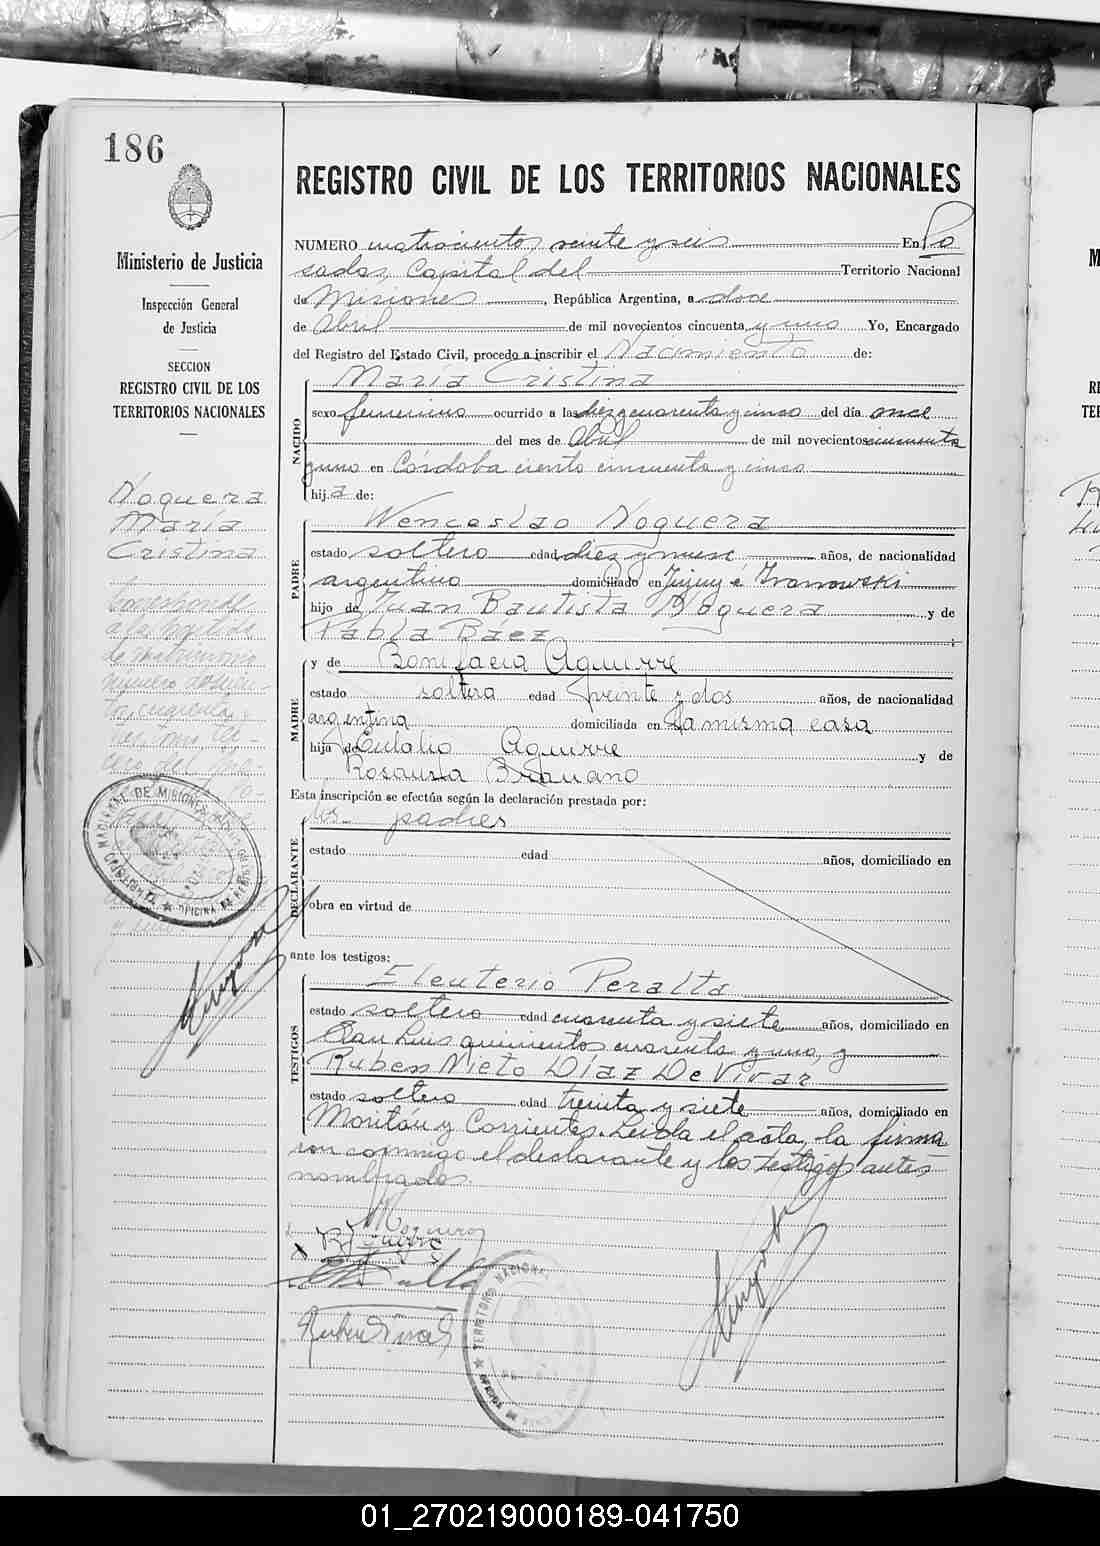 186
Ministerio de Justicia
Inspección General
de Justicia
SECCION
REGISTRO CIVIL DE LOS
TERRITORIOS NACIONALES
Noguera
María
Cristina
REGISTRO CIVIL DE LOS TERRITORIOS NACIONALES
NUMERO cuatrocientos veinte y seis En Po
sadas, Capital del Territorio Nacional
de Misiones, República Argentina, a doce
de Abril de mil novecientos cincuenta y uno Yo, Encargado
del Registro del Estado Civil, procedo a inscribir el Nacimiento de:
María Cristina
NACIDO
sexo femenino ocurrido a las diez y cuarenta y cinco del día once
del mes de Abril de mil novecientos cincuenta
y uno en Córdoba ciento cincuenta y cinco
hija de:
Wenceslao Noguera
PADRE
estado soltero edad diez y nueve años, de nacionalidad
argentino domiciliado en Jujuy é Ivanowski
hijo de Juan Bautista Noguera y de
Pabla Baez
y de Bonifacia Aguirre
MADRE
estado soltera edad veinte y dos años, de nacionalidad
argentina domiciliada en la misma casa
hija de Eulalio Aguirre y de
Rosaura
Esta inscripción se efectúa según la declaración prestada por:
los padres
DECLARANTE
estado edad años, domiciliado en
obra en virtud de
ante los testigos:
Eleuterio Peralta
TESTIGOS
estado soltero edad cuarenta y siete años, domiciliado en
San Luis quinientos cuarenta y uno, y
Ruben Nieto Díaz De Vivar
estado soltero edad treinta y siete años, domiciliado en
Moritán y Corrientes. Leída el acta, la firma
con conmigo el declarante y los testigos antes
nombrados.
Noguera
01_270219000189-041750